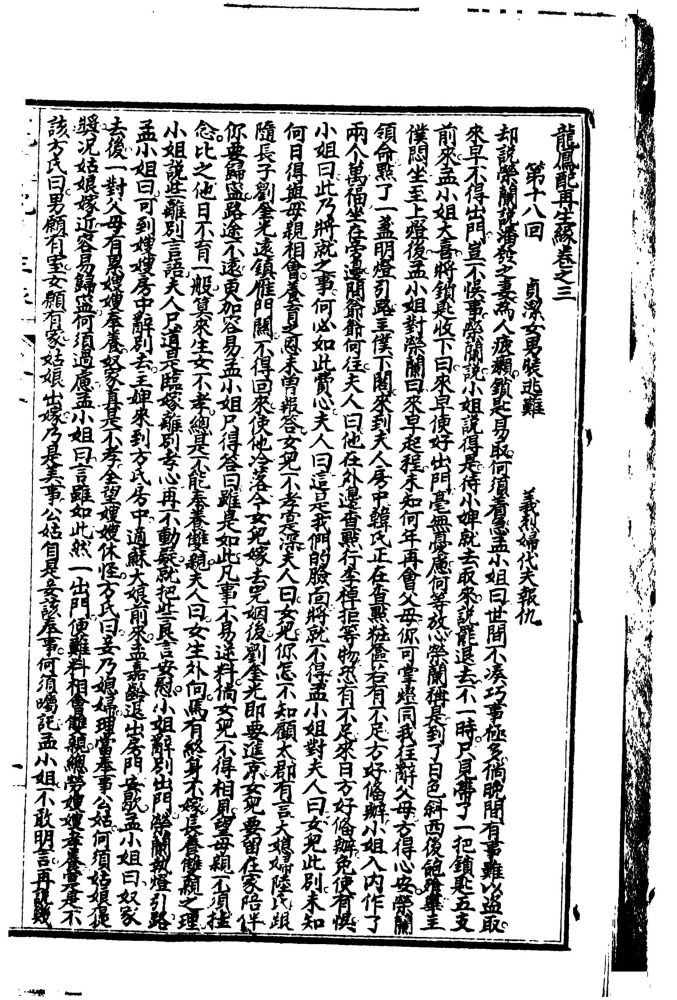 龍鳳配再生緣卷之三
第十八回　貞潔女男裝逃難　義烈婦代夫報仇
却說榮蘭說潘發之妻為人疲癩鎖匙易取何須着急孟小姐曰世間不湊巧事極多倘晚間有事難以盜取
來早不得出門豈不悞事榮蘭說小姐說得是待小婢就去取來說罷退去不一時只見帶了一把鎖匙五支
前來孟小姐大喜將鎖匙收下曰來早便好出門毫無憂慮何等放心榮蘭稱是到了日色斜西後飽飡畢主
僕悶坐至上燈後孟小姐對榮蘭曰來早起程未知何年再會父母你可掌燈同我往辭父母方得心安榮蘭
領命點了一盞明燈引路主僕下閣來到夫人房中韓氏正在查點粧奩若有不足方好俻辦小姐入內作了
兩个萬福坐在旁邊問爺爺何往夫人曰他在外邊查點行李棹椅等物恐有不足來日方好俻辦免使有悞
小姐曰此乃將就之事何必如此費心夫人曰這是我們的臉向將就不得孟小姐對夫人曰女兒此別未知
何日得與母親相會養育之恩未曾報答女兒不孝寔深夫人曰女兒你怎不知顧太郡有言大媳婦陸氏跟
隨長子劉奎光遠鎮雁門關不得回來使他冷落今女兒嫁去完姻後劉奎光即要進京女兒要留在家陪伴
你要歸寧路途不遠更加容易孟小姐只得答曰雖是如此凡事不易逆料倘女兒不得相見望母親不須挂
念比之他日不育一般算來生女不孝總是不能奉養雙親夫人曰女生外向焉有終身不嫁長養雙親之理
小姐說些離別言語夫人只道是臨嫁離別孝心再不動疑就把些良言安慰小姐辭別出門榮蘭執燈引路
孟小姐曰可到嫂嫂房中辭別去主婢來到方氏房中適蘇大娘前來孟嘉齡退出房門安歇孟小姐曰奴家
去後一對父母有累嫂嫂奉養奴家真是不孝全望嫂嫂休怪方氏曰妾乃媳婦理當奉事公姑何須姑娘褒
獎况姑娘嫁近容易歸寧何須過慮孟小姐曰言雖如此然一出門便難料相會雙親總勞嫂嫂孝養寔是不
該方氏曰男願有室女願有家姑娘出嫁乃是美事公姑自是妾該奉事何須囑託孟小姐不敢明言再說幾